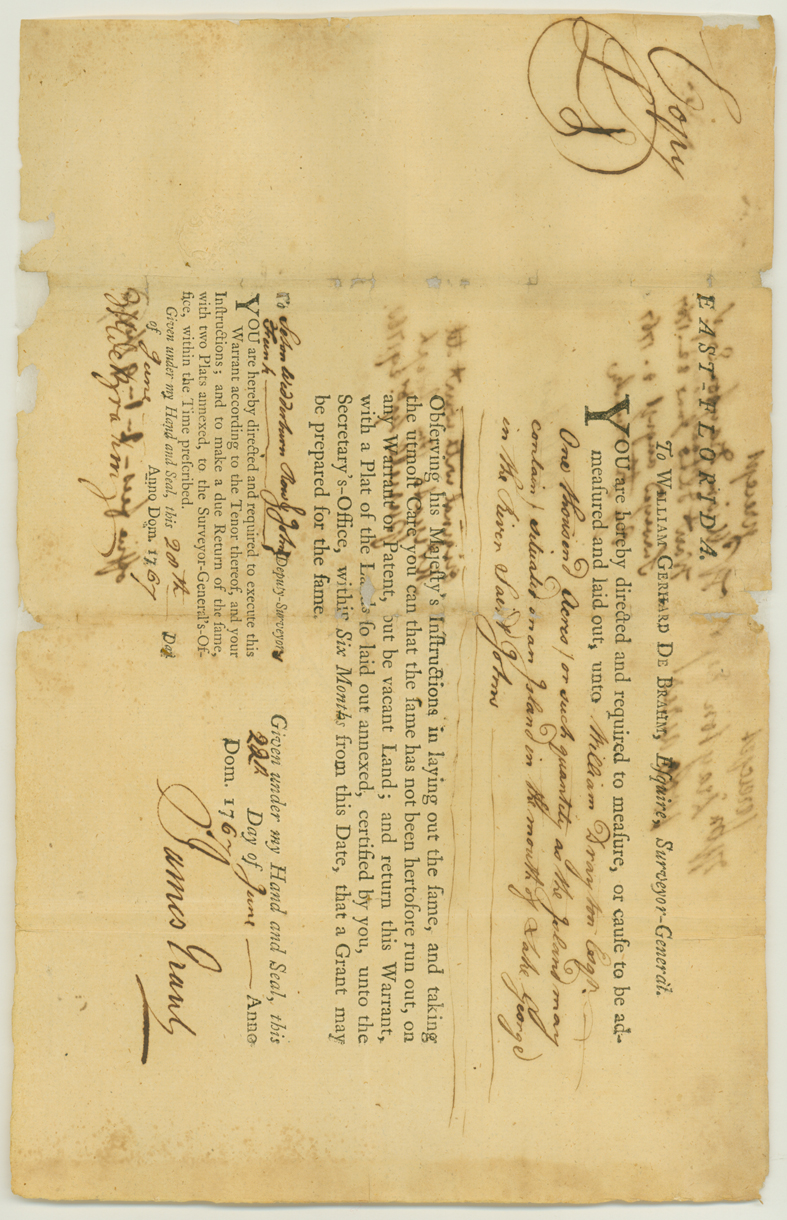 Copy
EAST-FLORIDA.
To WILLIAM GERHARD DE BRAHM, Eſquire, Surveyor-General.
YOU are hereby directed and required to meaſure, or cauſe to be ad-
meaſured and laid out, unto William Drayton Esqr.
One thousand Acres / or such quantity as the Island may
contain / situated on an Island in the mouth of Lake George
in the River Saint Johns
Obſerving his Majeſty's Inſtructions in laying out the ſame, and taking
the utmoſt Care you can that the ſame has not been hertofore run out, on
any Warrant or Patent, but be vacant Land; and return this Warrant,
with a Plat of the La ds ſo laid out annexed, certified by you, unto the
Secretary's-Office, within Six Months from this Date, that a Grant may
be prepared for the ſame.
Given under my Hand and Seal, this
22d Day of June Anno
Dom. 1767
James Grant
To John Funk Deputy-Surveyor
YOU are hereby directed and required to execute this
Warrant according to the Tenor thereof, and your
Inſtructions; and to make a due Return of the ſame,
with two Plats annexed, to the Surveyor-General's-Of-
fice, within the Time preſcribed.
Given under my Hand and Seal, this 20th Day
of June Anno Dom. 1767